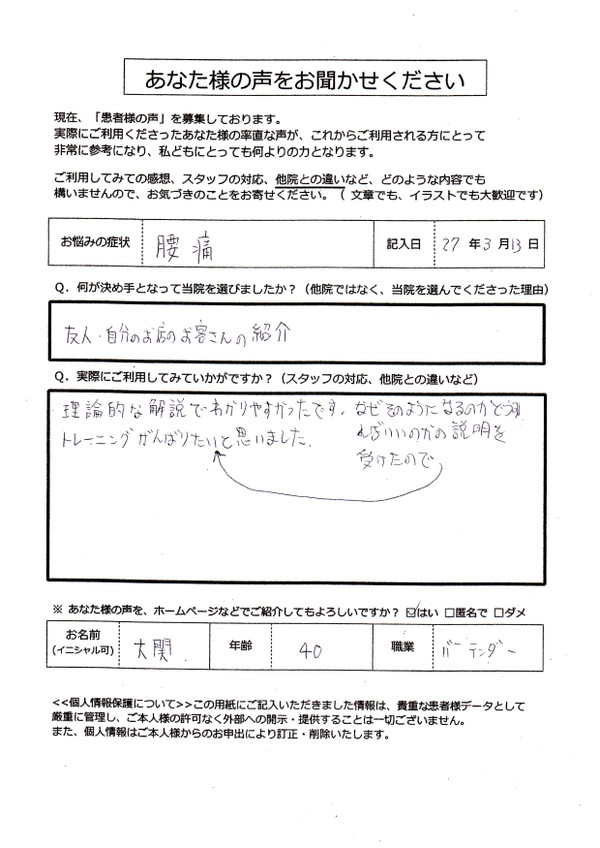 あなた様の声をお聞かせください
現在、「患者様の声」を募集しております。
実際にご利用くださったあなた様の率直な声が、これからご利用される方にとって
非常に参考になり、私どもにとっても何よりの力となります。
ご利用してみての感想、スタッフの対応、他院との違いなど、どのような内容でも
構いませんので、お気づきのことをお寄せください。（ 文章でも、イラストでも大歓迎です）
お悩みの症状 腰痛 記入日 27 年 3 月 13 日
Q．何が決め手となって当院を選びましたか？（他院ではなく、当院を選んでくださった理由）
友人・自分のお店のお客さんの紹介
Q．実際にご利用してみていかがですか？（スタッフの対応、他院との違いなど）
理論的な解説でわかりやすかったです。なぜそのようになるのかどうす
ればいいのかの説明を
受けたので
トレーニングがんばりたいと思いました。
※ あなた様の声を、ホームページなどでご紹介してもよろしいですか？ ☑はい □匿名で □ダメ
お名前 (イニシャル可) 大関 年齢 40 職業 バーテンダー
<<個人情報保護について>>この用紙にご記入いただきました情報は、貴重な患者様データとして
厳重に管理し、ご本人様の許可なく外部への開示・提供することは一切ございません。
また、個人情報はご本人様からのお申出により訂正・削除いたします。